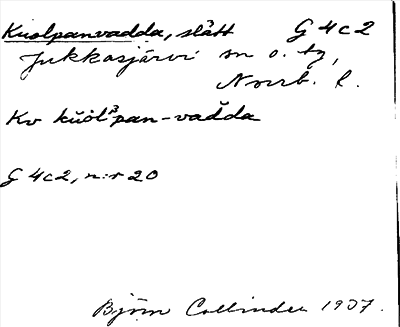 Kuolpanvadda, slått G 4c2
Jukkasjärvi sn o. tg,
Norrb. l.
Kv kŭòl³pan-vaďďa
G 4c2, n:r 20
Björn Collinder 1937.